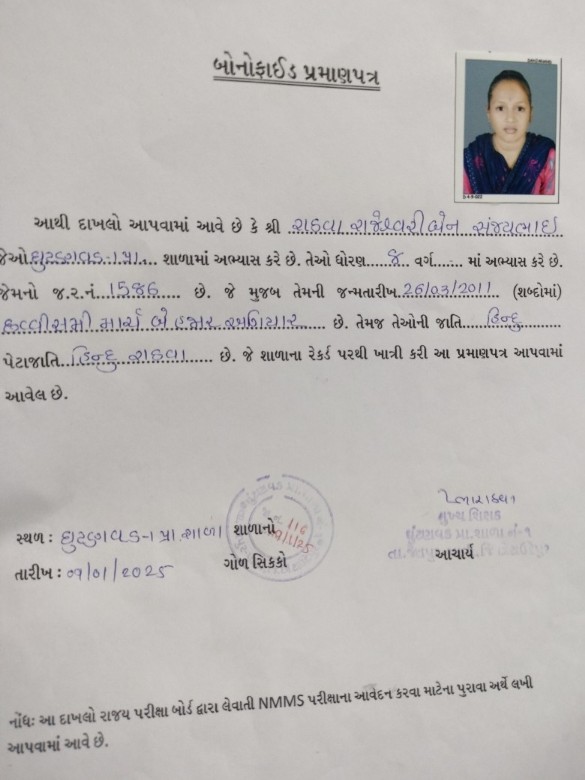 બોનોફાઈડ પ્રમાણપત્ર
આથી દાખલો આપવામાં આવે છે કે શ્રી રાઠવા રાજેશ્વરીબેન સંજયભાઈ
જેઓ ઘુટણવડ-૧ પ્રા. શાળામાં અભ્યાસ કરે છે. તેઓ ધોરણ વર્ગ માં અભ્યાસ કરે છે.
જેમનો જ.ર.નં. 1586 છે. જે મુજબ તેમની જન્મતારીખ 26/03/2011 (શબ્દોમાં)
છવ્વીસમી માર્ચ બે હજાર અગિયાર છે. તેમજ તેઓની જાતિ હિન્દુ
પેટાજાતિ હિન્દુ રાઠવા છે. જે શાળાના રેકર્ડ પરથી ખાત્રી કરી આ પ્રમાણપત્ર આપવામાં
આવેલ છે.
મુખ્ય શિક્ષક
સ્થળ : ઘુટણવડ-૧ પ્રા. શાળા શાળાનો
તારીખ : 09/01/2025 ગોળ સિક્કો આચાર્ય
નોંધઃ આ દાખલો રાજય પરીક્ષા બોર્ડ દ્વારા લેવાતી NMMS પરીક્ષાના આવેદન કરવા માટેના પુરાવા અર્થે લખી
આપવામાં આવે છે.